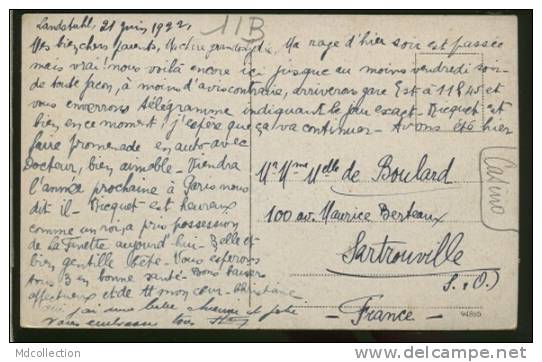 Landstuhl, 21 Juin 1922,
11B
Mes biens chers parents, Ma rage d'hier soir est passée
mais vrai! nous voilà encore ici jusque au moins vendredi soir
de toute façon, à moins d'avis contraire, arriverons gare Est à 11h40 et
vous enverrons télégramme indiquant le jour exact. Ricquet est
bien en ce moment, j'espère que ça va continuer - Avons été hier
faire promenade en auto avec
Docteur, bien aimable - Viendra
l'année prochaine à Paris nous
dit il - Ricquet est heureux
comme un roi, a pris possession
de la Finette aujourd'hui - Belle et
bien gentille bête - Vous espérons
tous 3 en bonne santé - Bons baisers
affectueux et de tt mon cœur - Christiane
j'ai une belle chienne et
vous embrasse tous
Mr Mme Melle de Boulard
100 av. Maurice Berteaux
Sartrouville
S. & O.)
- France -
Casino
MdCollection
http://www.delcampe.net